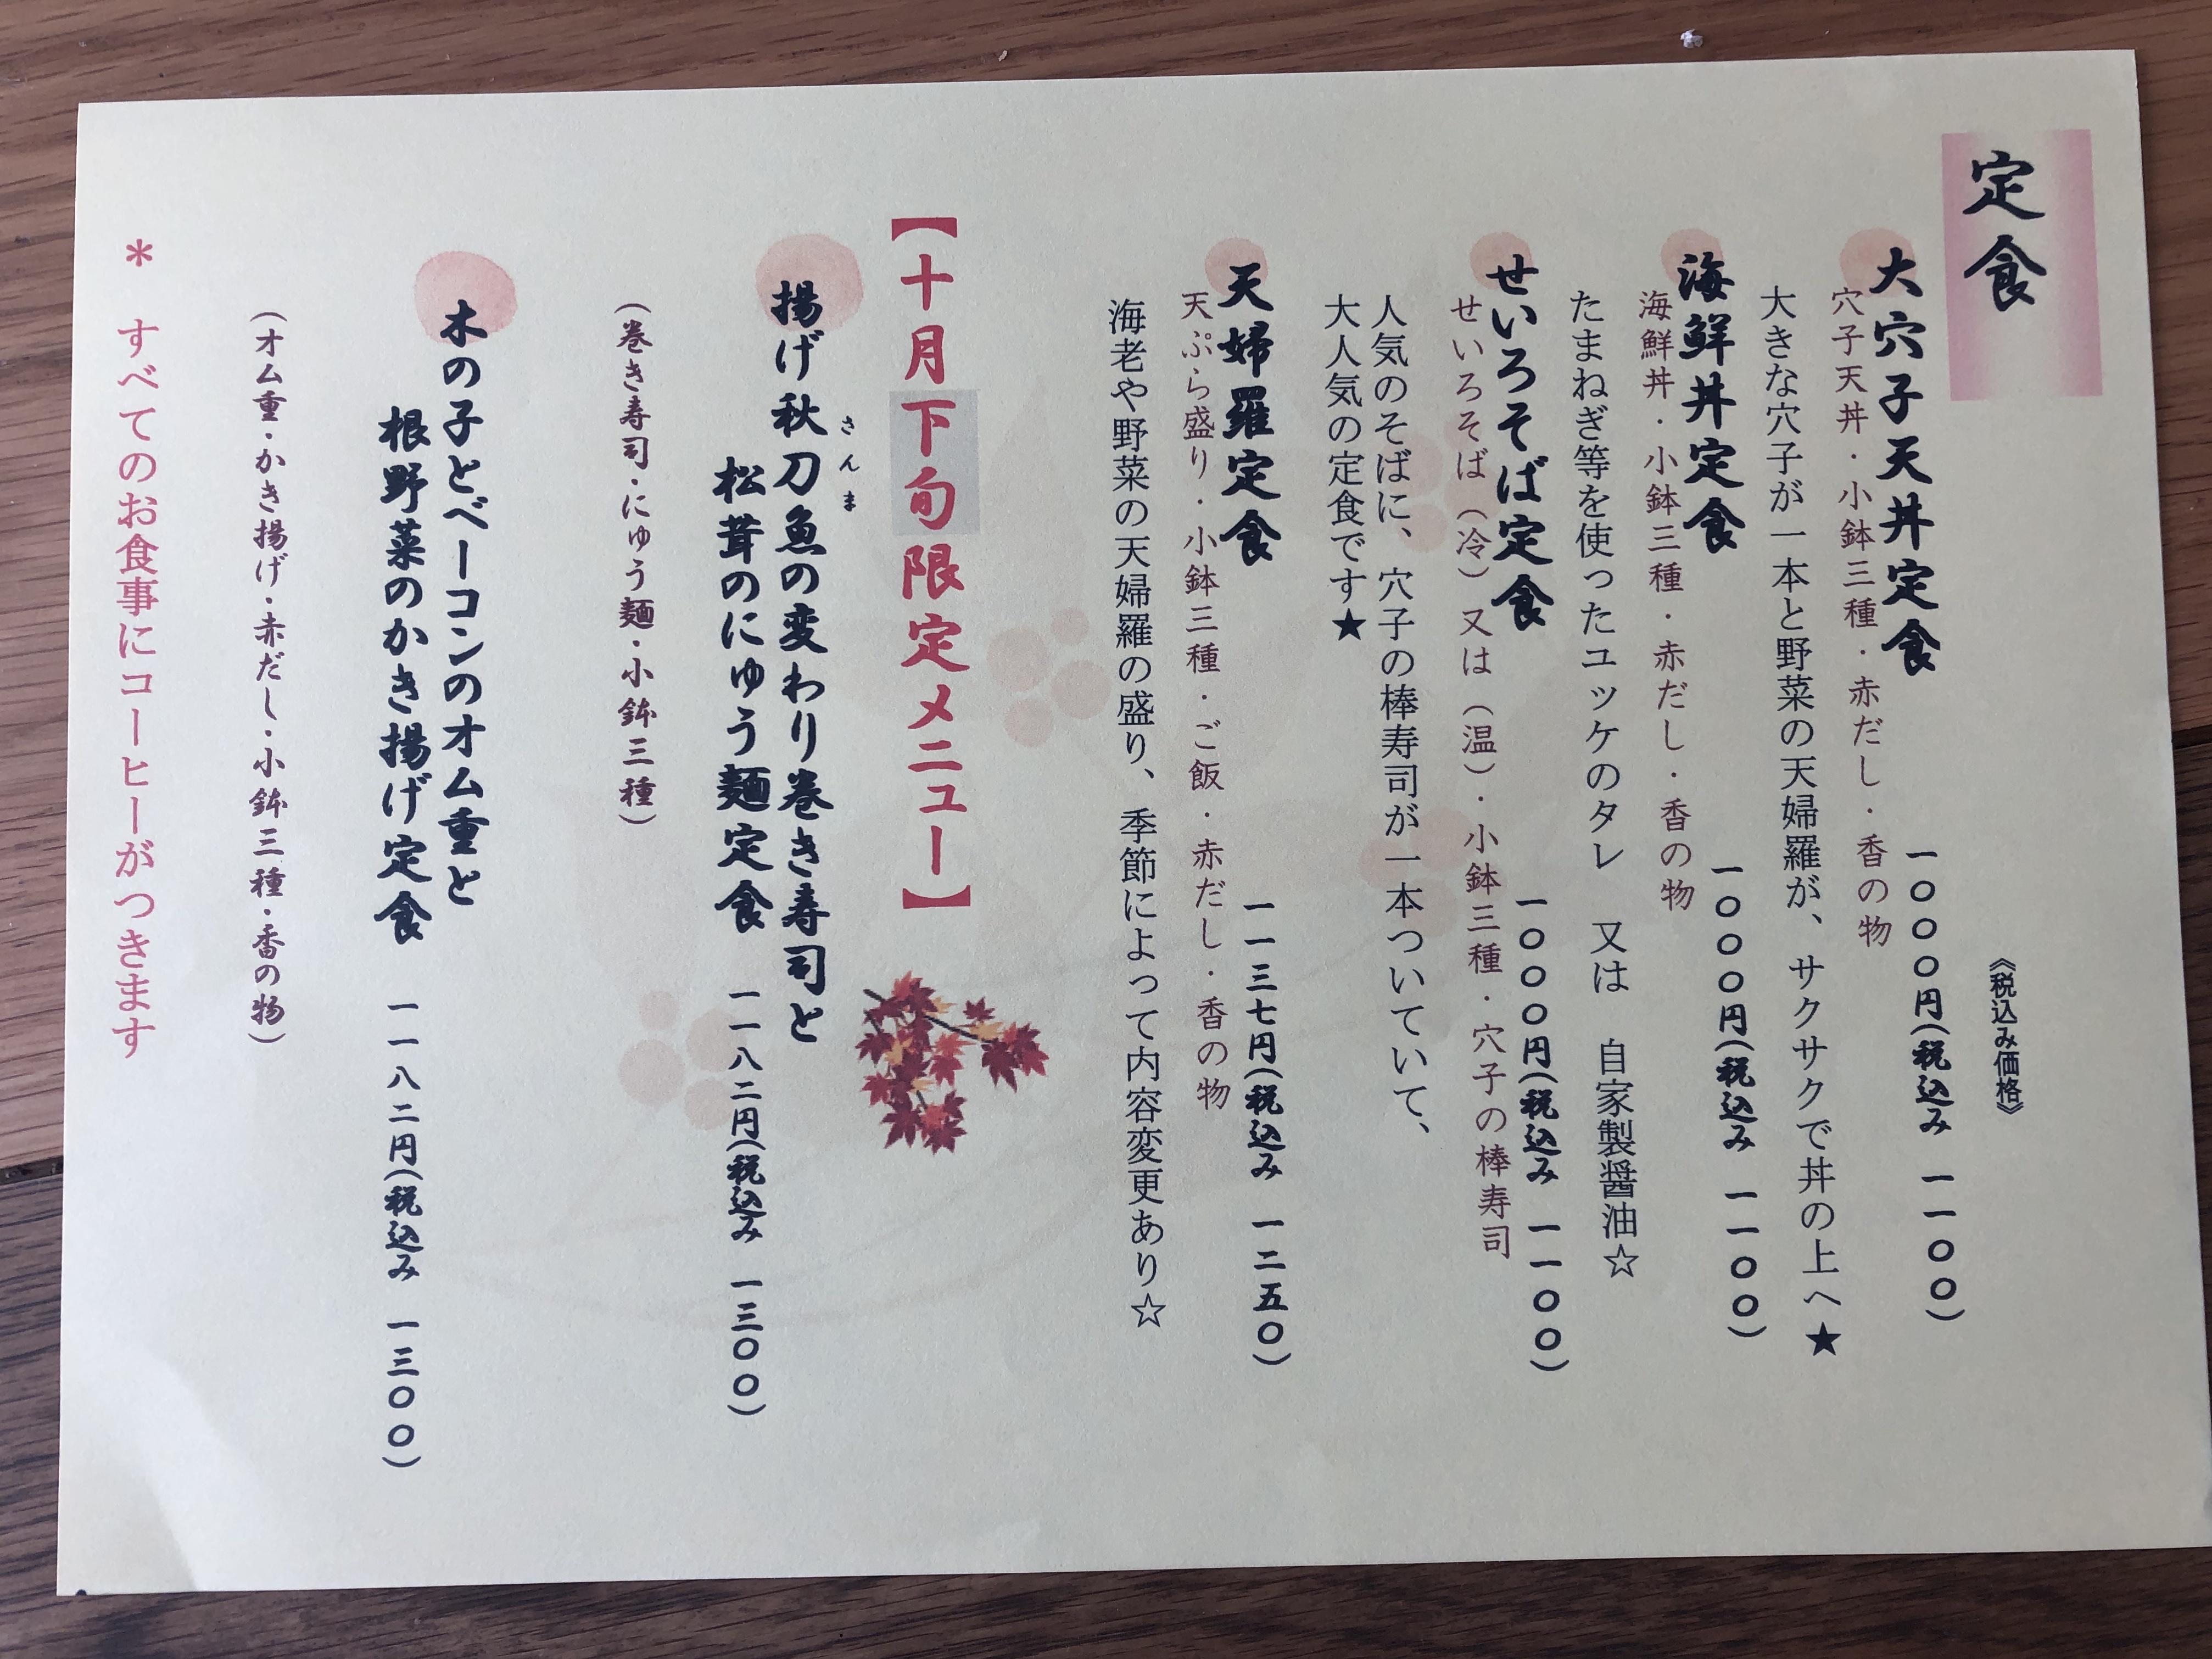 定食
《税込み価格》
大穴子天丼定食 一〇〇〇円(税込み 一一〇〇)
穴子天丼・小鉢三種・赤だし・香の物
大きな穴子が一本と野菜の天婦羅が、サクサクで丼の上へ★
海鮮丼定食 一〇〇〇円(税込み 一一〇〇)
海鮮丼・小鉢三種・赤だし・香の物
たまねぎ等を使ったユッケのタレ 又は 自家製醤油☆
せいろそば定食 一〇〇〇円(税込み 一一〇〇)
せいろそば(冷)又は(温)・小鉢三種・穴子の棒寿司
人気のそばに、穴子の棒寿司が一本ついていて、
大人気の定食です★
天婦羅定食 一一三七円(税込み 一二五〇)
天ぷら盛り・小鉢三種・ご飯・赤だし・香の物
海老や野菜の天婦羅の盛り、季節によって内容変更あり☆
【十月下旬限定メニュー】
さんま
揚げ秋刀魚の変わり巻き寿司と
松茸のにゅう麺定食 一一八二円(税込み 一三〇〇)
(巻き寿司・にゅう麺・小鉢三種)
木の子とベーコンのオム重と
根野菜のかき揚げ定食 一一八二円(税込み 一三〇〇)
(オム重・かき揚げ・赤だし・小鉢三種・香の物)
＊ すべてのお食事にコーヒーがつきます